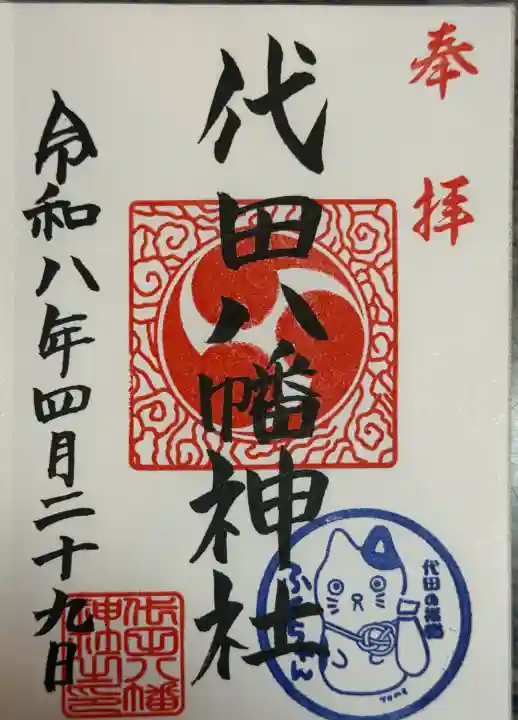 奉拝
代田八幡神社
令和八年四月二十九日
代田八幡
神社之印
代田の招福
ふくちゃん
TOME